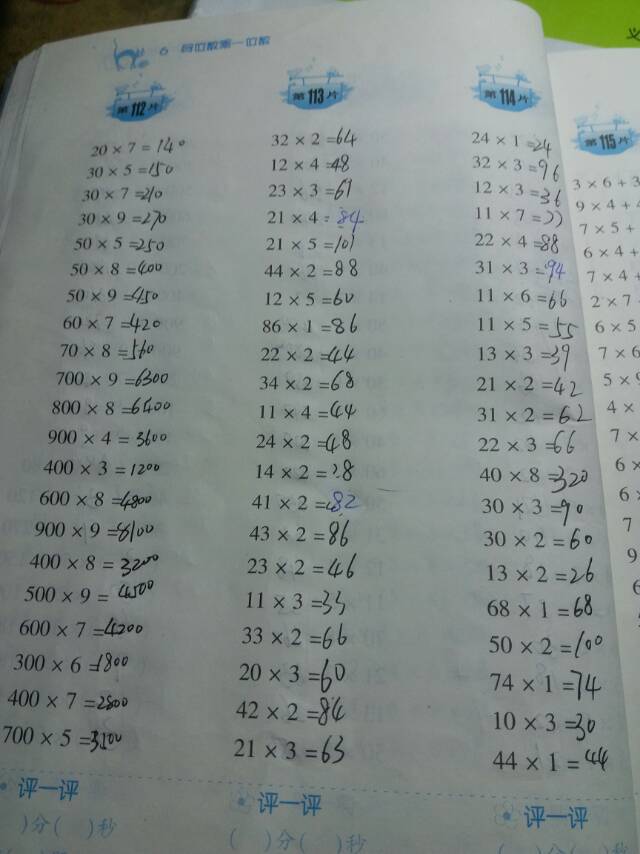 多位数乘一位数
第112片
20 × 7 = 140
30 × 5 = 150
30 × 7 = 210
30 × 9 = 270
50 × 5 = 250
50 × 8 = 400
50 × 9 = 450
60 × 7 = 420
70 × 8 = 560
700 × 9 = 6300
800 × 8 = 6400
900 × 4 = 3600
400 × 3 = 1200
600 × 8 = 4800
900 × 9 = 8100
400 × 8 = 3200
500 × 9 = 4500
600 × 7 = 4200
300 × 6 = 1800
400 × 7 = 2800
700 × 5 = 3500
评一评
)分( )秒
第113片
32 × 2 = 64
12 × 4 = 48
23 × 3 = 69
21 × 4 = 84
21 × 5 = 101
44 × 2 = 88
12 × 5 = 60
86 × 1 = 86
22 × 2 = 44
34 × 2 = 68
11 × 4 = 44
24 × 2 = 48
14 × 2 = 28
41 × 2 = 82
43 × 2 = 86
23 × 2 = 46
11 × 3 = 33
33 × 2 = 66
20 × 3 = 60
42 × 2 = 84
21 × 3 = 63
评一评
( )分( )秒
第114片
24 × 1 = 24
32 × 3 = 96
12 × 3 = 36
11 × 7 = 77
22 × 4 = 88
31 × 3 = 94
11 × 6 = 66
11 × 5 = 55
13 × 3 = 39
21 × 2 = 42
31 × 2 = 62
22 × 3 = 66
40 × 8 = 320
30 × 3 = 90
30 × 2 = 60
13 × 2 = 26
68 × 1 = 68
50 × 2 = 100
74 × 1 = 74
10 × 3 = 30
44 × 1 = 44
评一评
( )分( )秒
义
第115片
3 × 6 + 3
9 × 4 + 4
7 × 5 +
6 × 4 +
7 × 4 +
2 × 7
6 × 5
7 × 6
5 × 9
4 ×
7 ×
6 ×
6 ×
7
9
6